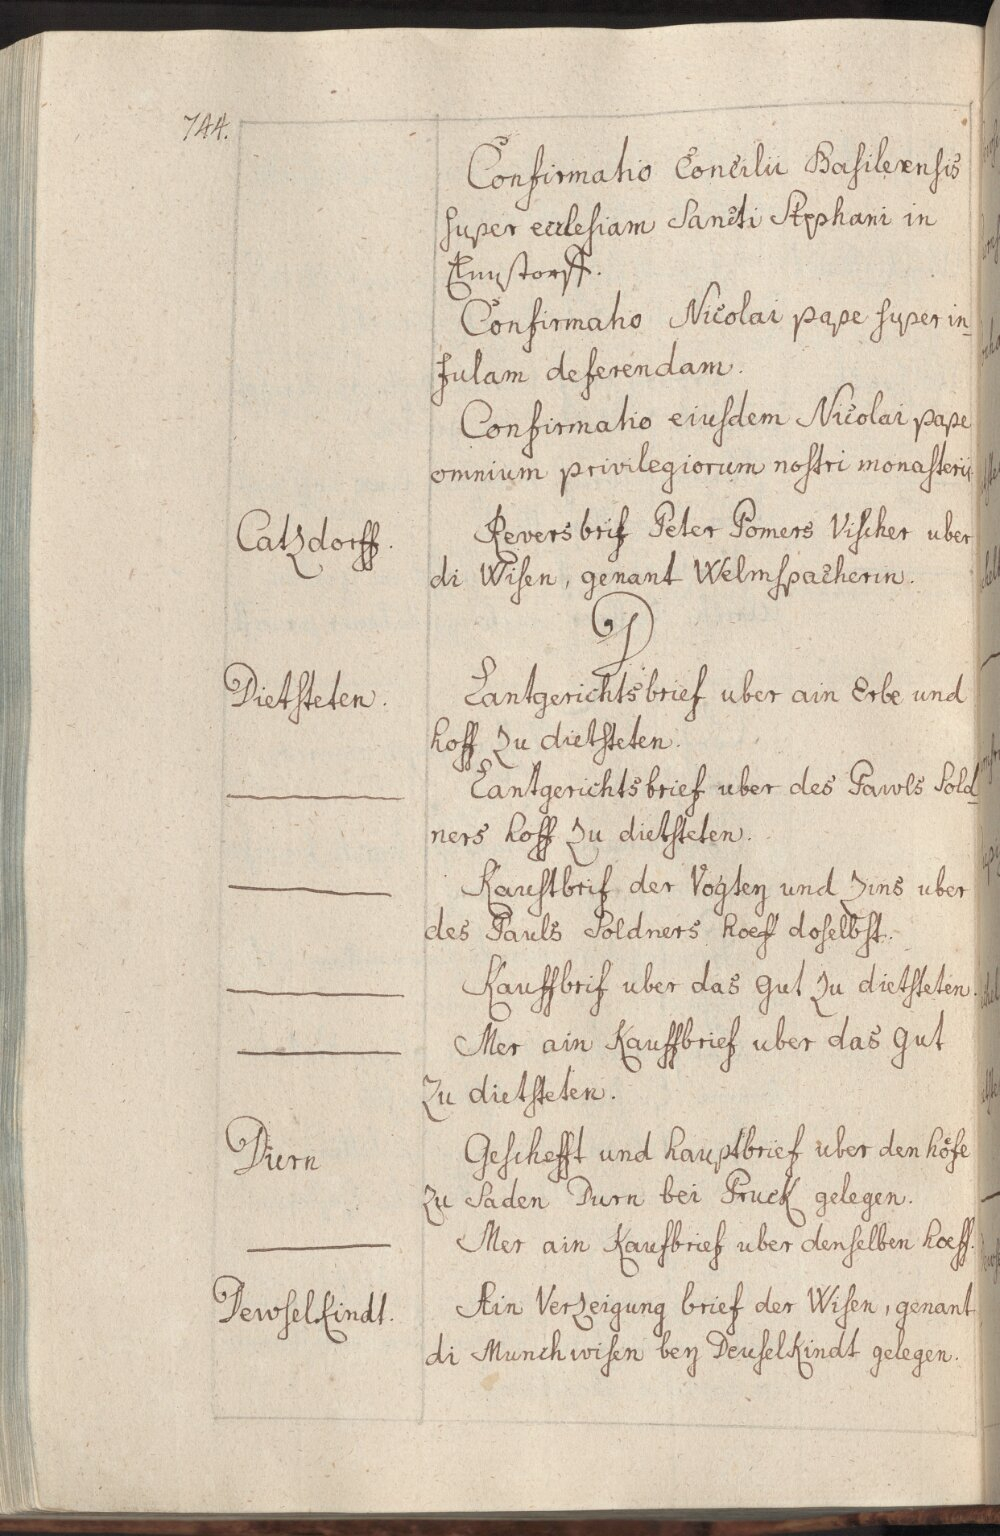 744.
Confirmatio Concilii Basileensis
super ecclesiam Sancti Stephani in
Emstorff.
Confirmatio Nicolai pape super in_
fulam deferendam.
Confirmatio eiusdem Nicolai pape
omnium privilegiorum nostri monasterii
Catzdorff. Reversbrif Peter Pomers Vischer uber
di Wisen, genant Welmspacherin.
D
Dietsteten. Lantgerichtsbrief uber ain Erbe und
hoff zu dietsteten.
Lantgerichtsbrief uber des Pawls Sold_
ners hoff zu dietsteten.
Kauftbrif der Vogtey und Zins uber
des Pauls Soldners hoeff doselbst.
Kauffbrif uber das Gut zu dietsteten.
Mer ain Kauffbrief uber das Gut
zu dietsteten.
Durn Geschefft und hauptbrief uber den höfe
zu Saden Durn bei Pruck gelegen.
Mer ain Kaufbrief uber denselben hoeff.
Dewselkindt. Ain Verzeigung brief der Wisen, genant
di Munchwisen bey Deuselkindt gelegen.